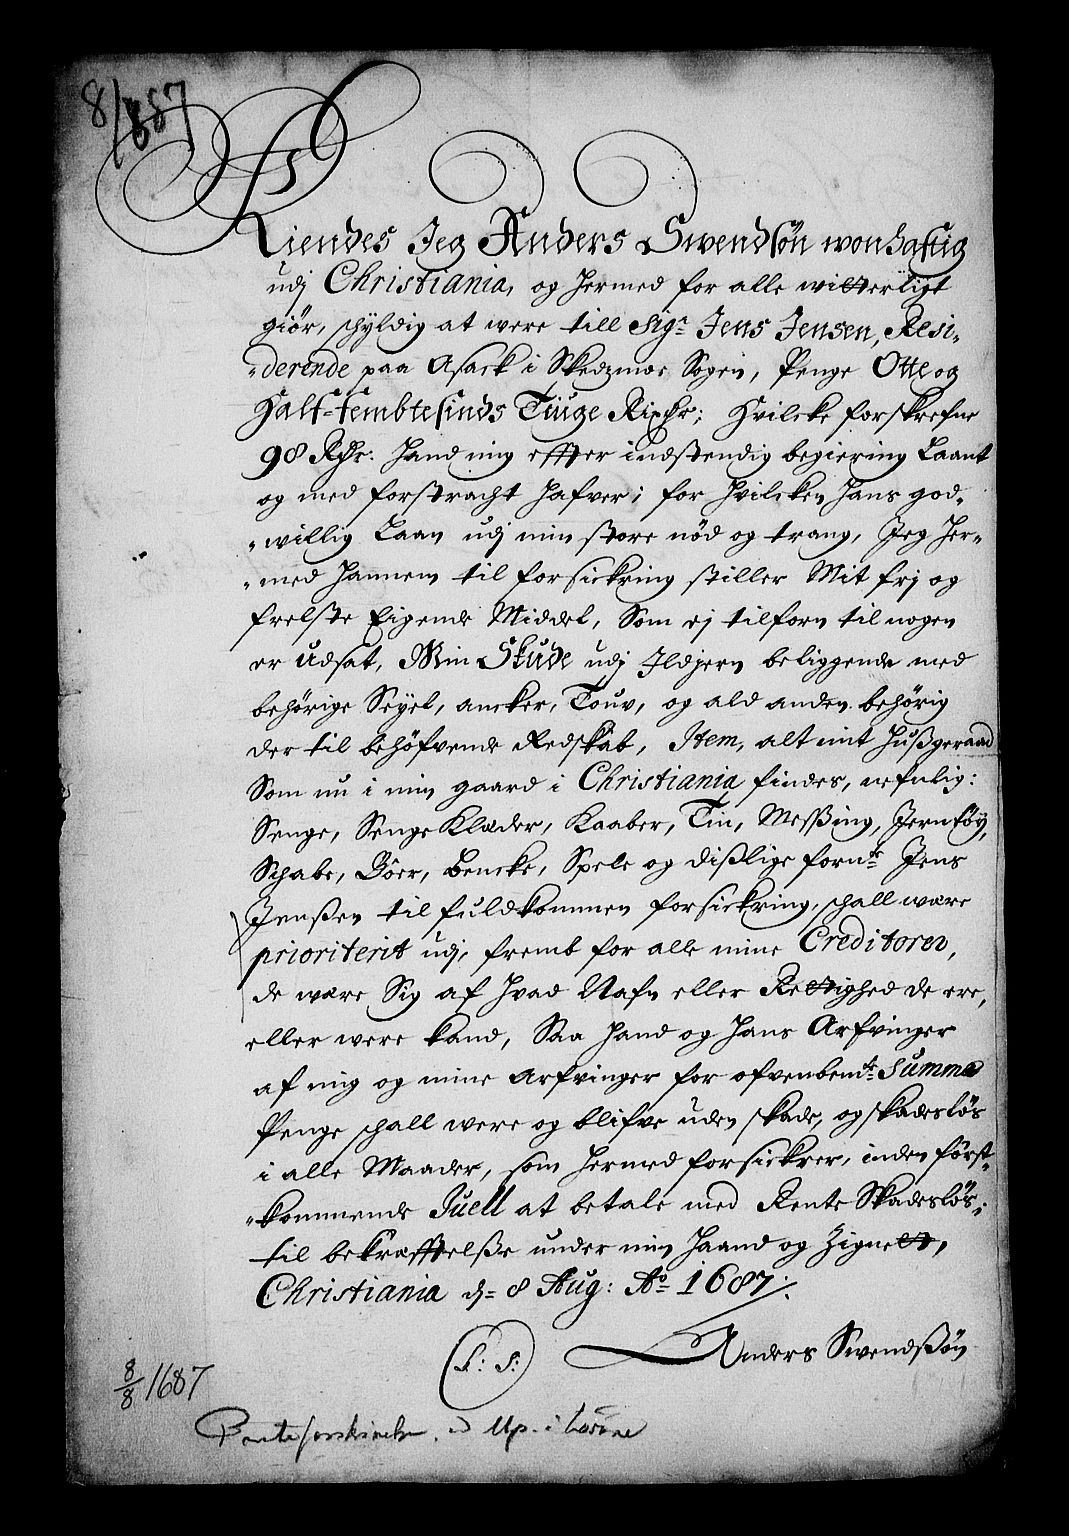 8/8 87
Kiendes Jeg Anders Swendsøn wonhaftig
udj Christiania, og hermed for alle witterligt
giør, schyldig at were till Sigr Jens Jensen, Resi-
-derende paa Asack i Skedzmoe Sogen, Penge Otte og
Half-fembtesinds Tiuge Rixdr; Hvilcke forskrefne
98 Rdr. hand mig effter indstendig begiering Laant
og med forstracht hafver; for hvilcken hans god-
-willig Laan udj min store nød og trang, Jeg her-
-med hannem til forsickring stiller Mit frj og
frelste Eigende Middel, Som ej tilforn til nogen
er udsat, Min Skude udj Ildjern beliggende med
behørige Seyel, ancker, Touv, og ald anden behørig
der til behøfvende Redskab, Item, alt mit hußgeraad
Som nu i min gaard i Christiania findes, nefnlig:
Senge, Senge Klæder, Kaaber, Tin, Meßing, Jerntøy,
Schabe, Böer, Bencke, Spele og dißlige fornte Jens
Jenßen til fuldkommen forsickring, schall være
prioriterit udj, fremb for alle mine Creditorer,
de være Sig af hvad Nafn eller Rettighed de ere,
eller were kand, Saa hand og hans Arfvinger
af mig og mine Arfvinger for ofvenbemte Summa
Penge schall were og blifve uden skade, og skadesløs
i alle Maader, som hermed forsickrer, inden først-
-kommende Juell at betale med Rente Skadesløs;
til bekræfftelße under min Haand og Zignett,
Christiania d= 8 Aug: Ao 1687.
(L: S:) Anders Swendßøn
8/8 1687